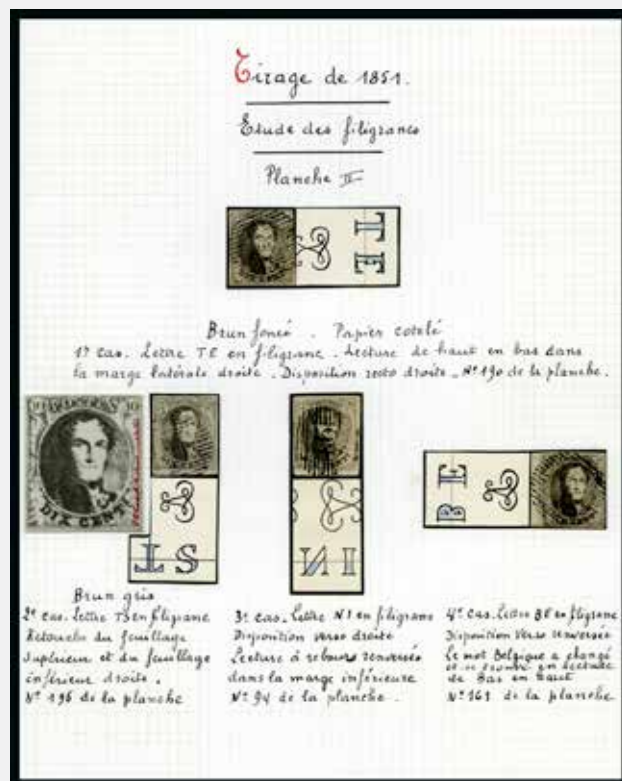 Tirage de 1851.
Etude des filigranes
Planche II
TE
Brun foncé . Papier cotelé
1º cas. Lettre TE en filigrane. Lecture de haut en bas dans
la marge latérale droite. Disposition recto droite. Nº 190 de la planche.
DIX CENT
TS
IN
BE
Brun gris
2º cas. Lettre TS en filigrane
Retouche du feuillage
supérieur et du feuillage
inférieur droite.
Nº 196 de la planche
3º cas. Lettre NI en filigrane
Disposition verso droite
Lecture à rebours renversée
dans la marge inférieure
Nº 94 de la planche.
4º cas. Lettre BE en filigrane
Disposition verso renversée
Le mot Belgique a changé
et se trouve en lecture
de Bas en haut
Nº 161 de la planche